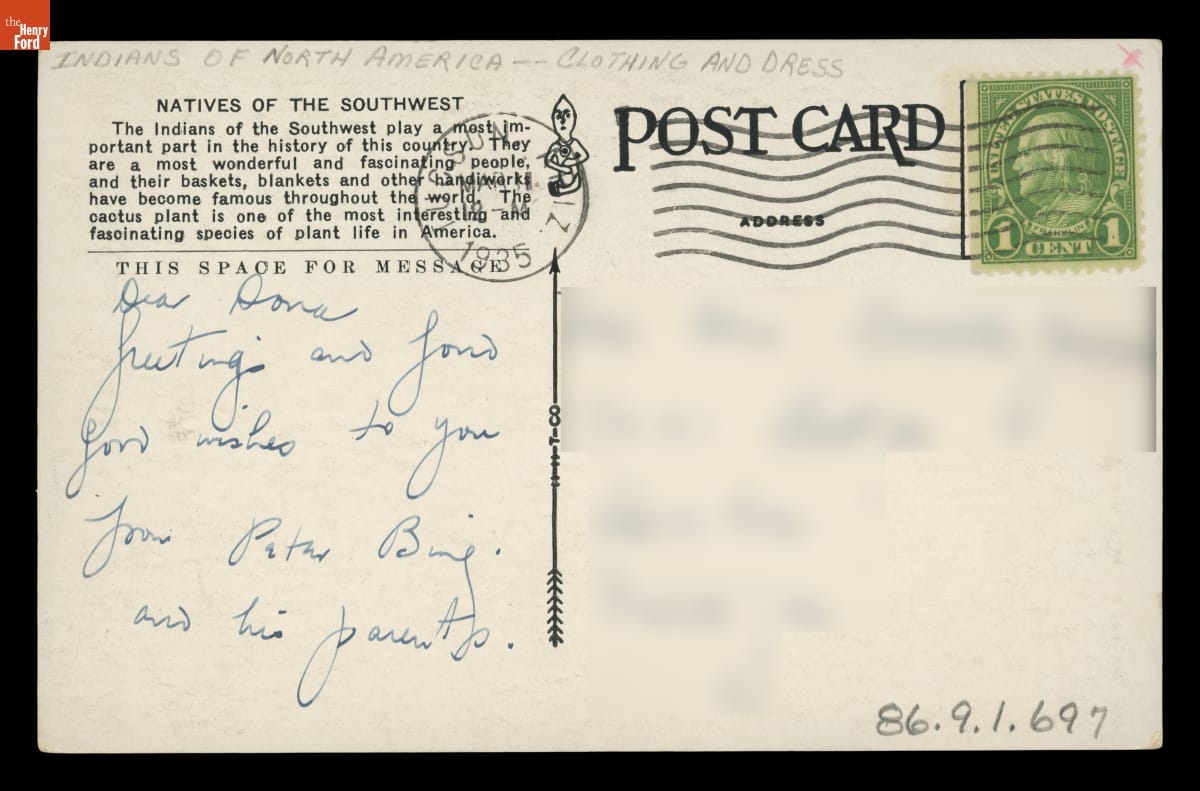 the
Henry
Ford
INDIANS OF NORTH AMERICA -- CLOTHING AND DRESS
NATIVES OF THE SOUTHWEST
The Indians of the Southwest play a most im-
portant part in the history of this country. They
are a most wonderful and fascinating people,
and their baskets, blankets and other handiworks
have become famous throughout the world. The
cactus plant is one of the most interesting and
fascinating species of plant life in America.
THIS SPACE FOR MESSAGE
TUCSON
ARIZ
1935
POST CARD
ADDRESS
UNITED STATES POSTAGE
FRANKLIN
1 CENT 1
Dear Dona
Greetings and fond
good wishes to you
from Peter Bing.
and his parents.
H-H-T-CO
86.9.1.697